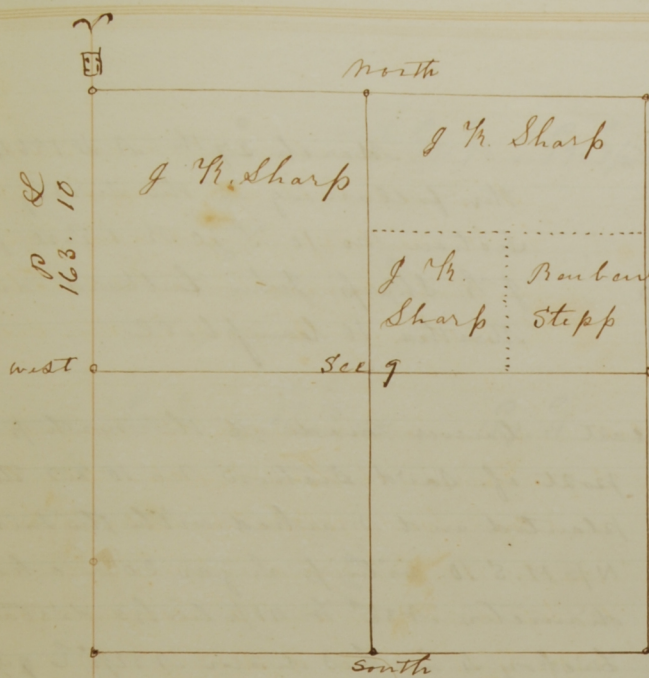 North
J K. Sharp
J K. Sharp
P L
163. 10
J K.
Sharp
Stepp
west
Sec 9
South